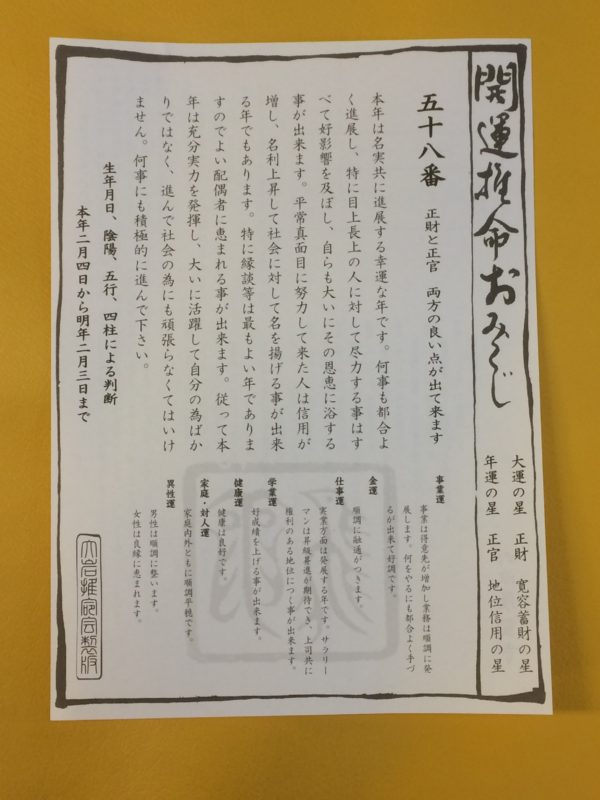 開運推命おみくじ
大運の星　正財　寛容蓄財の星
年運の星　正官　地位信用の星
五十八番　正財と正官　両方の良い点が出て来ます
本年は名実共に進展する幸運な年です。何事も都合よ
く進展し、特に目上長上の人に対して尽力する事はす
べて好影響を及ぼし、自らも大いにその恩恵に浴する
事が出来ます。平常真面目に努力して来た人は信用が
増し、名利上昇して社会に対して名を揚げる事が出来
る年でもあります。特に縁談等は最もよい年でありま
すのでよい配偶者に恵まれる事が出来ます。従って本
年は充分実力を発揮し、大いに活躍して自分の為ばか
りではなく、進んで社会の為にも頑張らなくてはいけ
ません。何事にも積極的に進んで下さい。
生年月日、陰陽、五行、四柱による判断
本年二月四日から明年二月三日まで
事業運
事業は得意先が増加し業務は順調に発
展します。何をやるにも都合よく手づ
るが出来て好調です。
金運
順調に融通がつきます。
仕事運
実業方面は発展する年です。サラリー
マンは昇級昇進が期待でき、上司共に
権利のある地位につく事が出来ます。
学業運
好成績を上げる事が出来ます。
健康運
健康は良好です。
家庭・対人運
家庭内外ともに順調平穏です。
異性運
男性は順調に整います。
女性は良縁に恵まれます。
大岩推命会製版